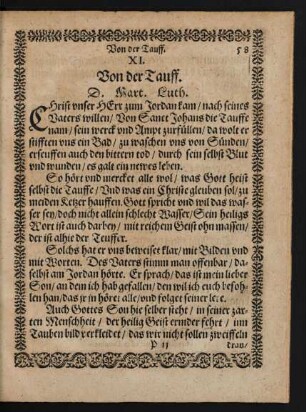 Von der Tauff. 58
XI.
Von der Tauff.
D. Mart. Luth.
CHrist vnser HErr zum Jordan kam / nach seines
Vaters willen / Von Sanct Johans die Tauffe
nam / sein werck vnd Ampt zurfüllen / da wolt er
stifften vns ein Bad / zu waschen vns von Sünden /
erseuffen auch den bittern tod / durch sein selbst Blut
vnd wunden / es galt ein newes leben.
So hört vnd mercket alle wol / was Gott heist
selbst die Tauffe / Vnd was ein Christe gleuben sol / zu
meiden Ketzer hauffen. Gott spricht vnd wil das was
ser sey / doch nicht allein schlecht Wasser / Sein heiligs
Wort ist auch darbey / mit reichem Geist ohn massen /
der ist alhie der Teuffer.
Solchs hat er vns beweiset klar / mit Bilden vnd
mit Worten. Des Vaters stimm man offenbar / da-
selbst am Jordan hörte. Er sprach / das ist mein lieber
Son / an dem ich hab gefallen / den wil ich euch befoh-
len han / das jr jn höret alle / vnd folget seiner lere.
Auch Gottes Son hie selber steht / in seiner zar-
ten Menschheit / der heilig Geist ernider fehrt / inn
Tauben bild verkleidet / das wir nicht sollen zweiffeln
P ij dran /